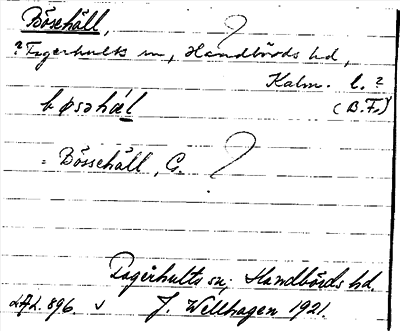 Bösehäll, ?
? Fagerhults sn, Handbörds hd,
Kalm. l. ?
(B.Fs)
= Bössehäll, C. ?
Fagerhults sn, Handbörds hd.
896. v J. Wellhagen 1921.